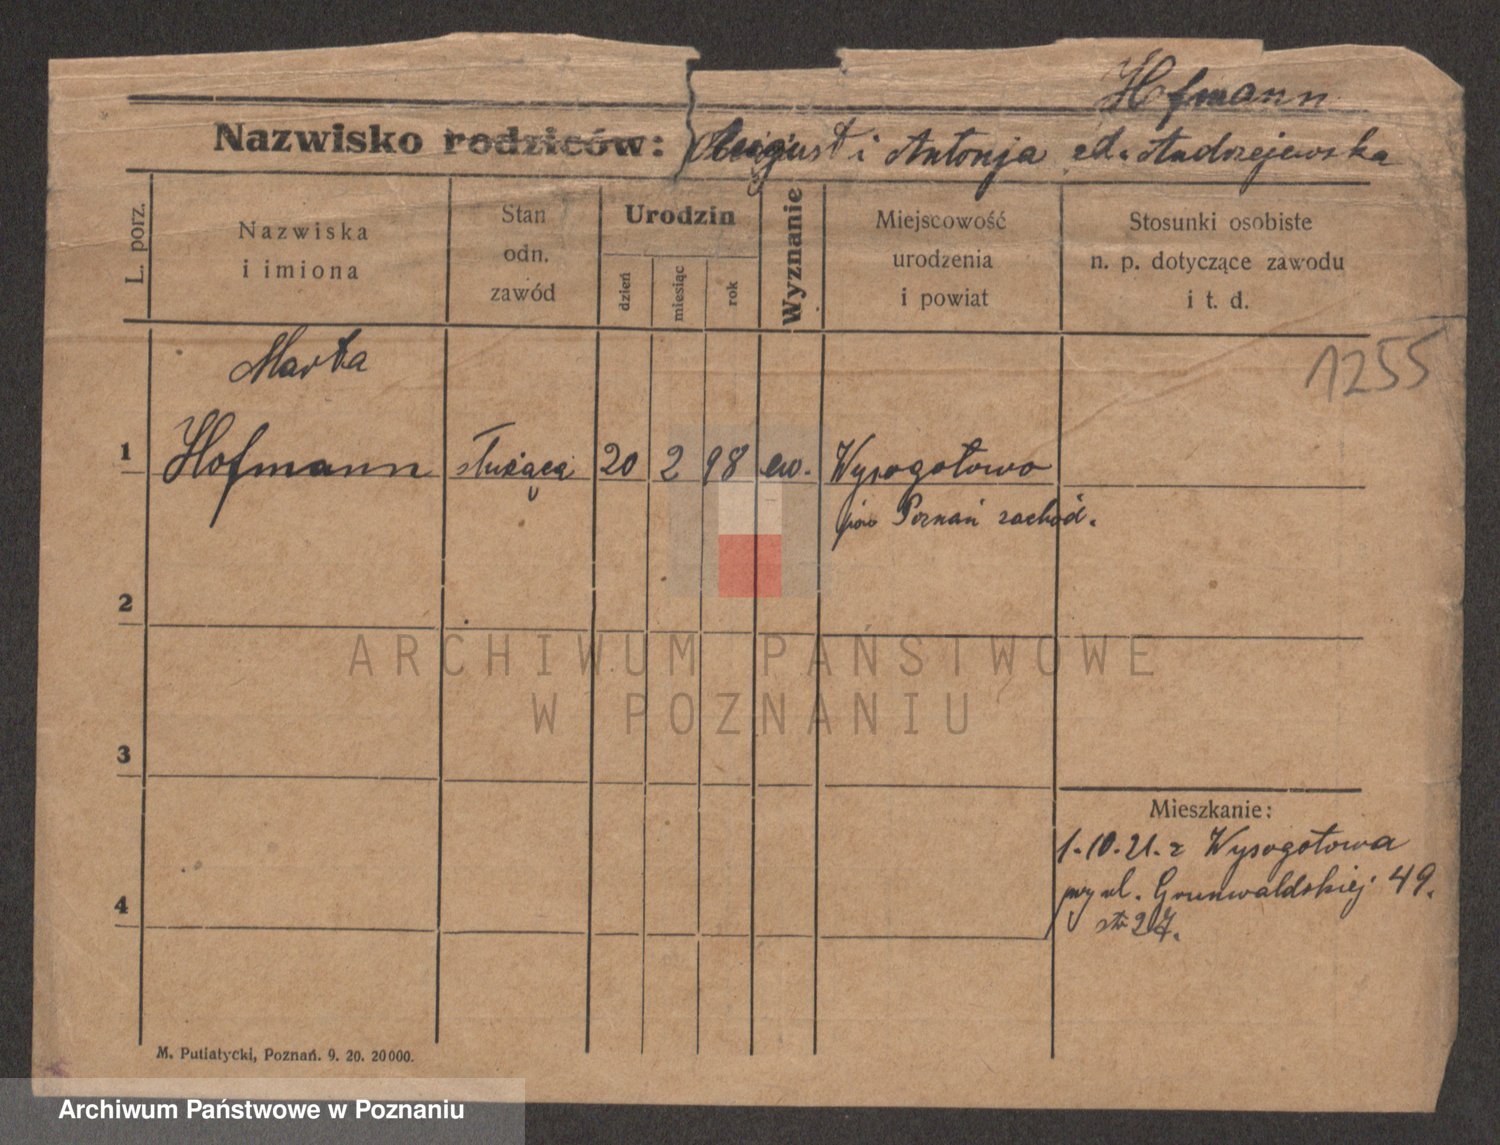 Hofmann
Nazwisko rodziców: August i Antonja Andrzejewska
L. porz.
Nazwiska
i imiona
Stan
odn.
zawód
Urodzin
dzień
miesiąc
rok
Wyznanie
Miejscowość
urodzenia
i powiat
Stosunki osobiste
n. p. dotyczące zawodu
i t. d.
1255
Marta
1 Hofmann służąca 20 2 98 ew. Wysogotowo
pow Poznań zachód.
2
3
4
Mieszkanie:
1.10.21. z Wysogotowa
przy ul. Grunwaldskiej 49.
27.
M. Putiatycki, Poznań. 9. 20. 20000.
ARCHIWUM PAŃSTWOWE
W POZNANIU
Archiwum Państwowe w Poznaniu